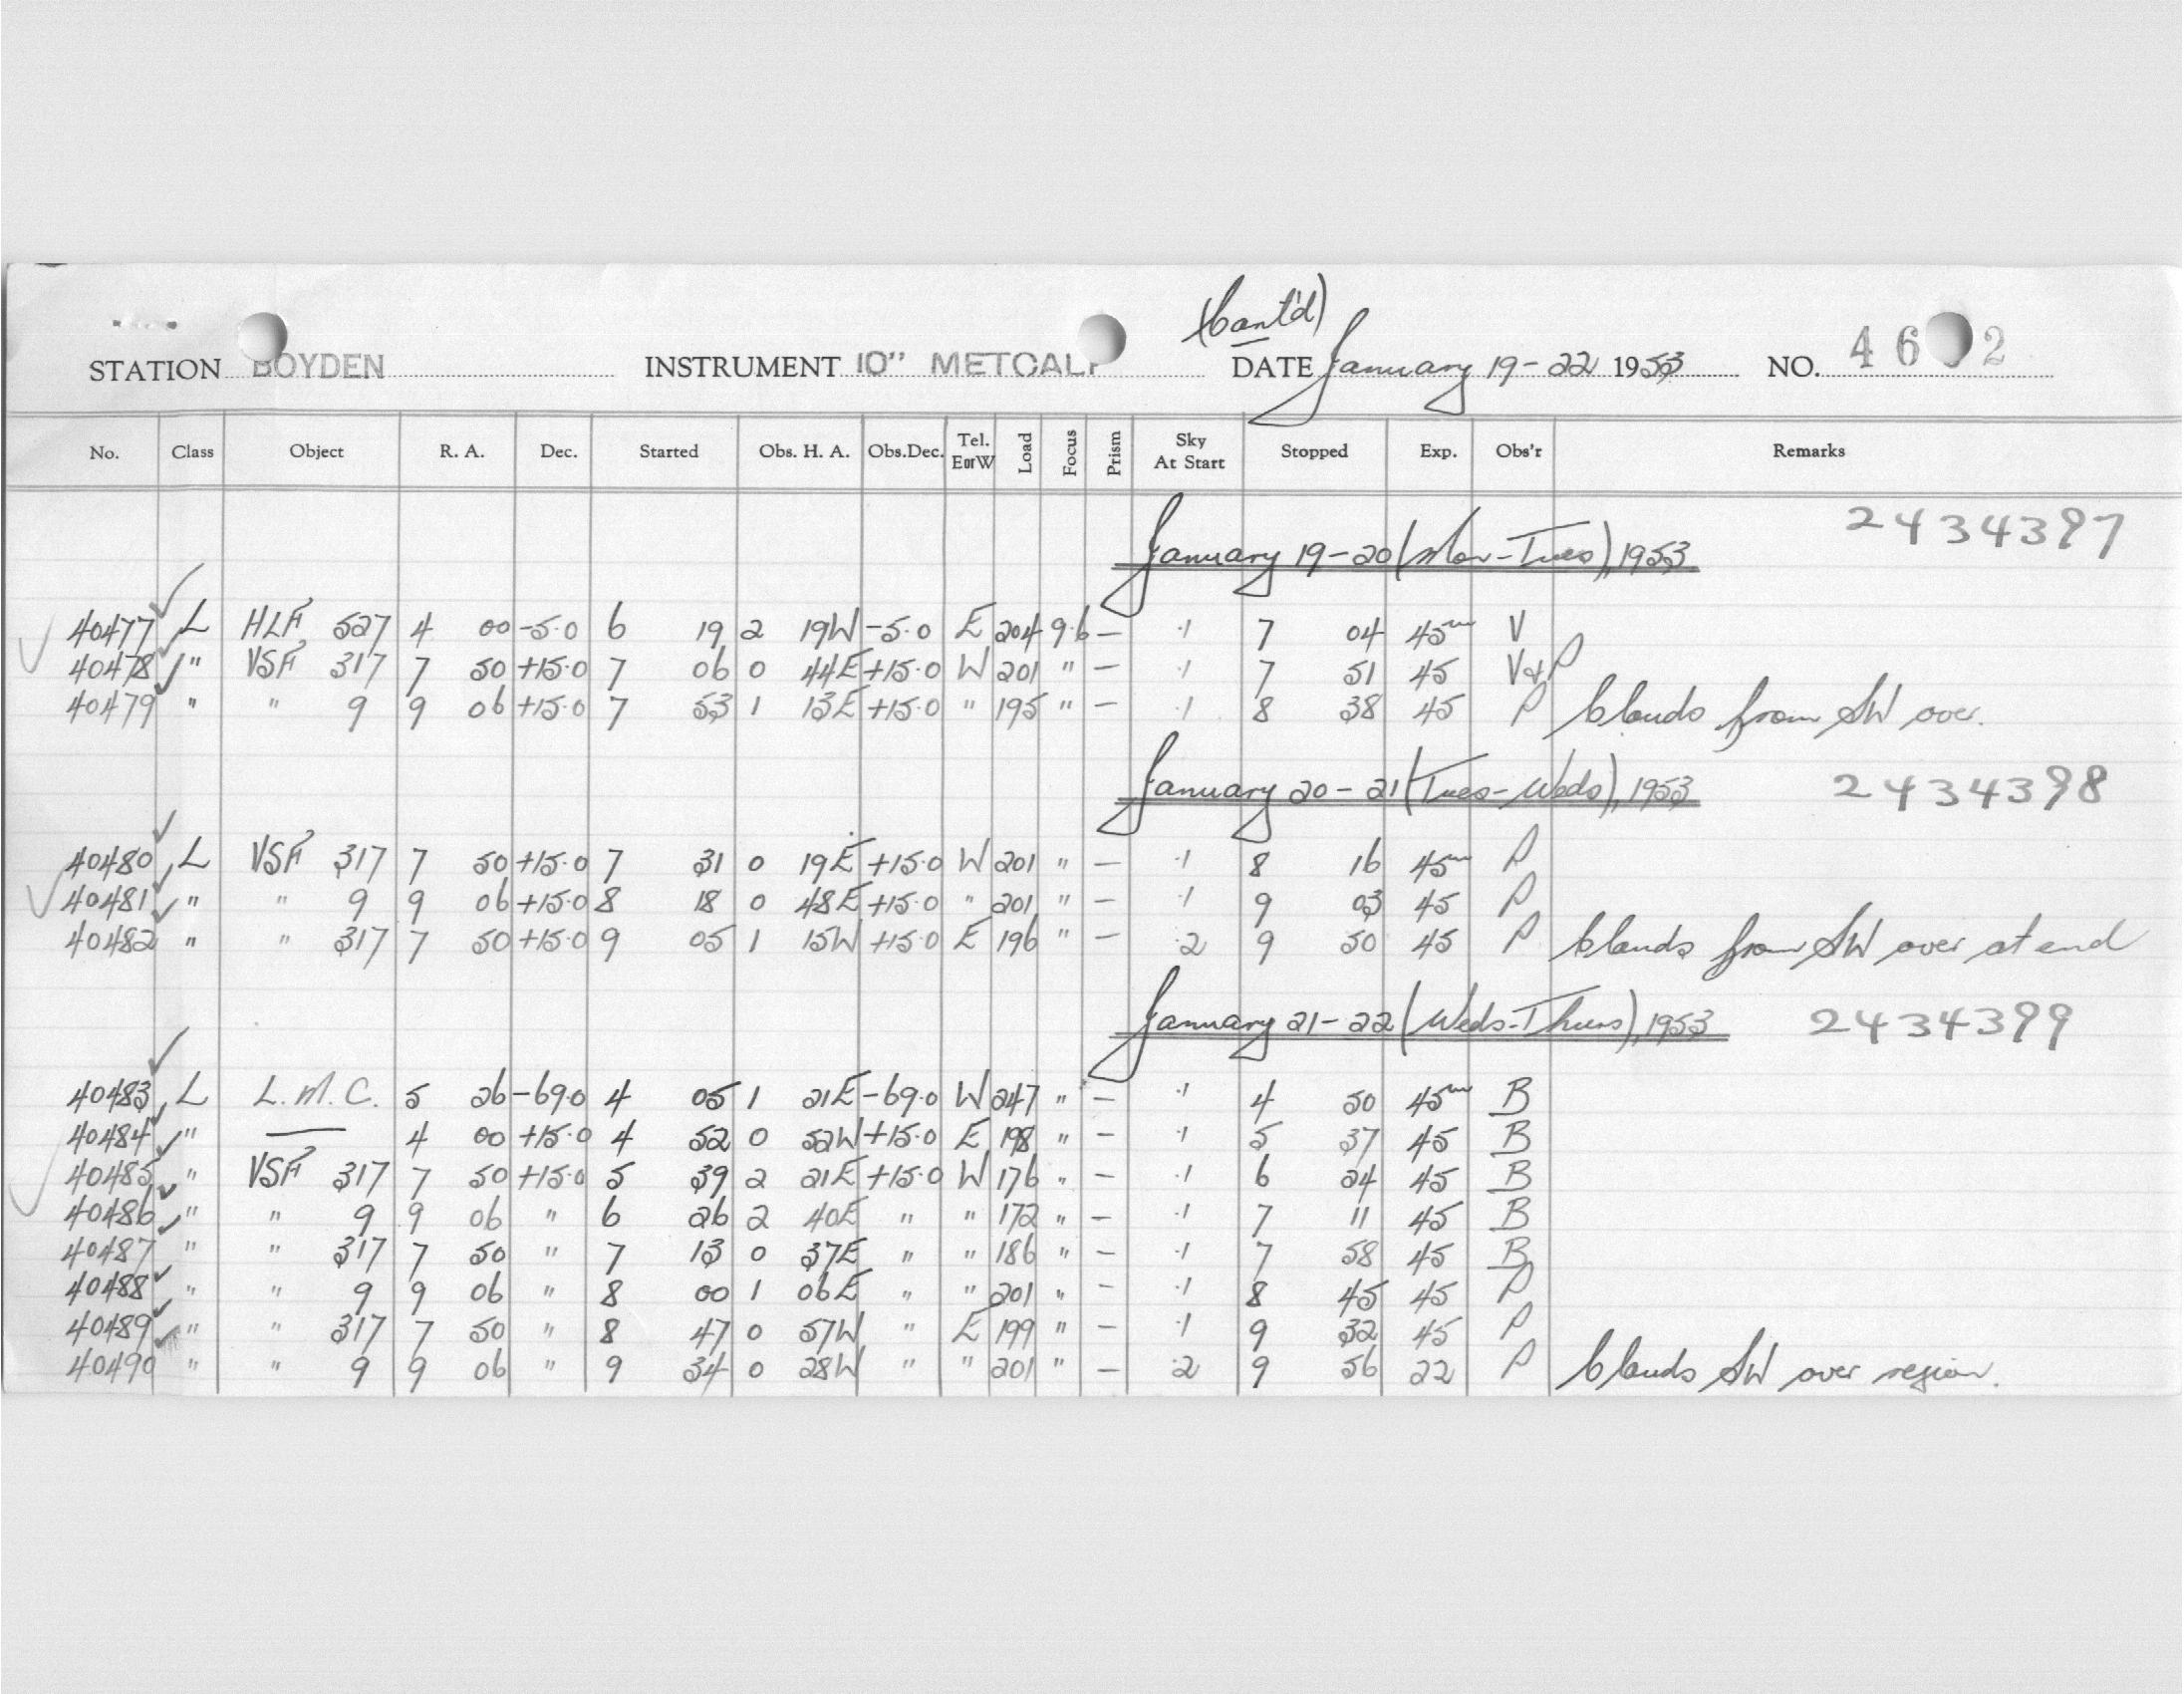 (Cont'd)
STATION BOYDEN INSTRUMENT 10" METCALF DATE January 19-22 1953 NO. 46 2
No. Class Object R. A. Dec. Started Obs. H. A. Obs.Dec. Tel. E or W Load Focus Prism Sky At Start Stopped Exp. Obs'r Remarks
January 19-20 (Mon-Tues), 1953 2434397
40477 L HLF 527 4 00 -5.0 6 19 2 19W -5.0 E 204 9.6 — .1 7 04 45m V
40478 " VSF 317 7 50 +15.0 7 06 0 44E +15.0 W 201 " — .1 7 51 45 V+P
40479 " " 9 9 06 +15.0 7 53 1 13E +15.0 " 195 " — .1 8 38 45 P Clouds from SW over.
January 20-21 (Tues-Weds), 1953 2434398
40480 L VSF 317 7 50 +15.0 7 31 0 19E +15.0 W 201 " — .1 8 16 45m P
40481 " " 9 9 06 +15.0 8 18 0 48E +15.0 " 201 " — .1 9 03 45 P
40482 " " 317 7 50 +15.0 9 05 1 15W +15.0 E 196 " — .2 9 50 45 P Clouds from SW over at end
January 21-22 (Weds-Thurs), 1953 2434399
40483 L L.M.C. 5 26 -69.0 4 05 1 21E -69.0 W 247 " — .1 4 50 45m B
40484 " — 4 00 +15.0 4 52 0 52W +15.0 E 198 " — .1 5 37 45 B
40485 " VSF 317 7 50 +15.0 5 39 2 21E +15.0 W 176 " — .1 6 24 45 B
40486 " " 9 9 06 " 6 26 2 40E " " 172 " — .1 7 11 45 B
40487 " " 317 7 50 " 7 13 0 37E " " 186 " — .1 7 58 45 B
40488 " " 9 9 06 " 8 00 1 06E " " 201 " — .1 8 45 45 P
40489 " " 317 7 50 " 8 47 0 57W " E 199 " — .1 9 32 45 P
40490 " " 9 9 06 " 9 34 0 28W " " 201 " — .2 9 56 22 P Clouds SW over region.